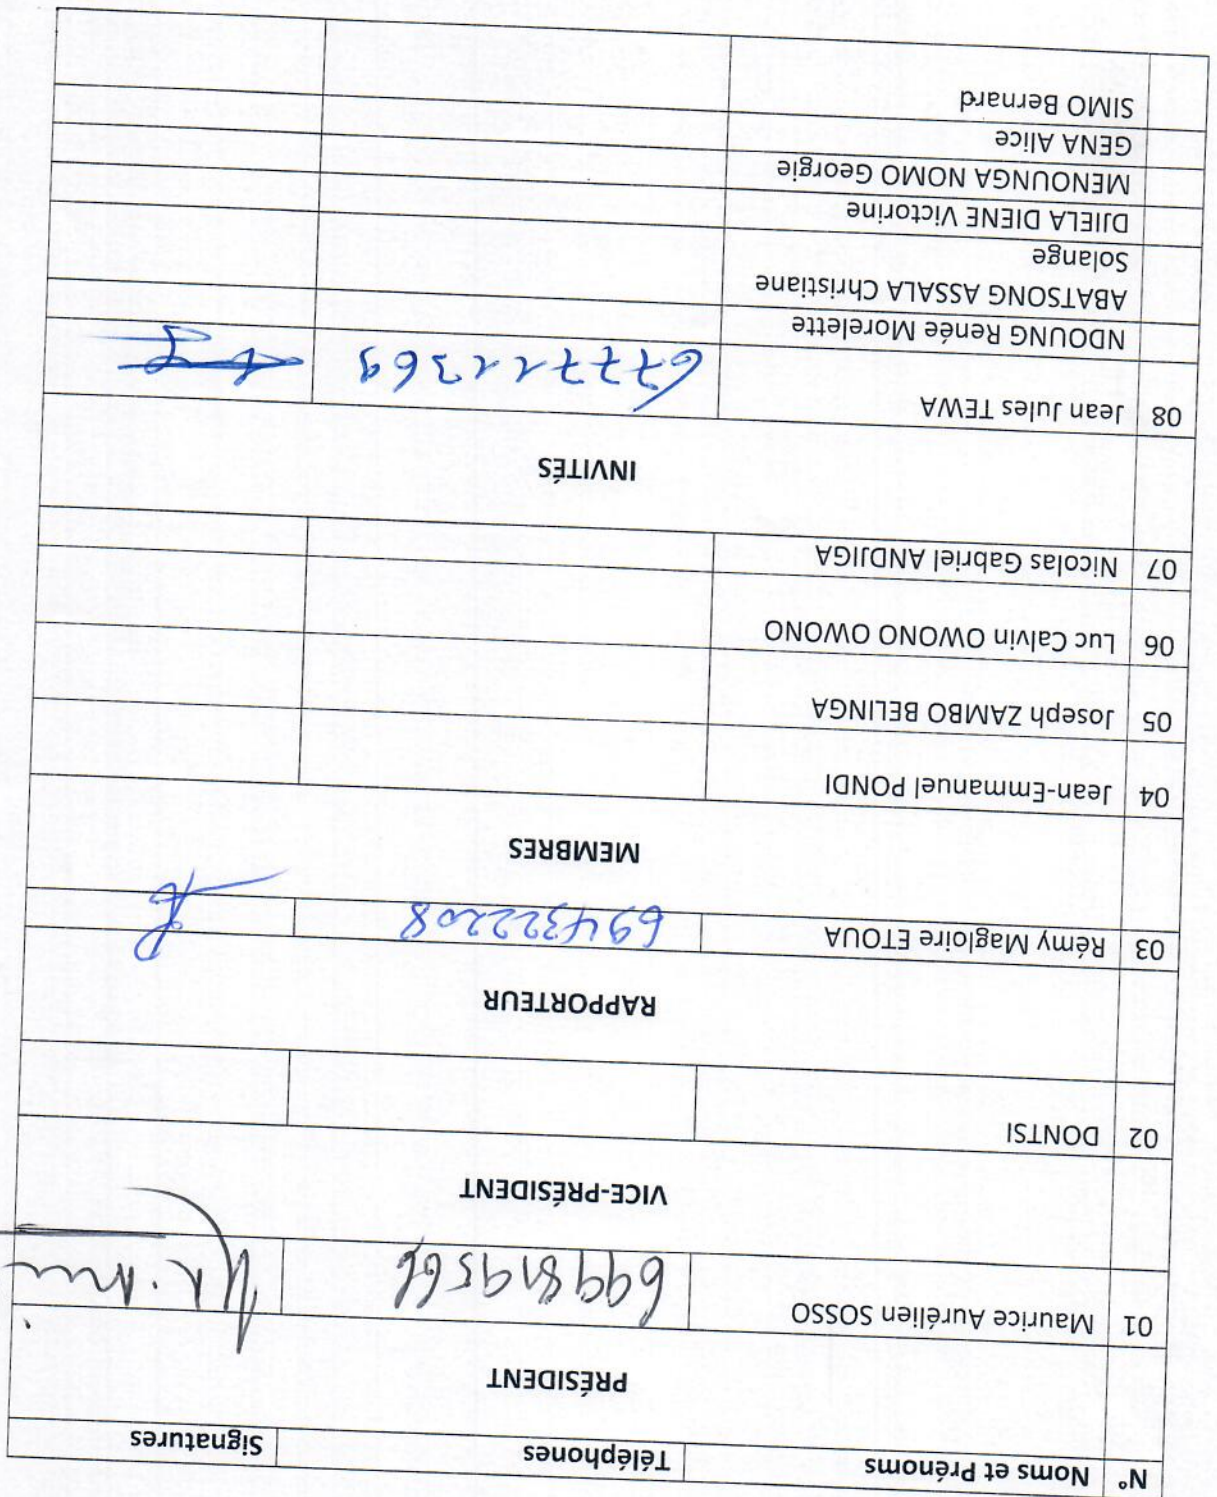 N° Noms et Prénoms Téléphones Signatures
PRÉSIDENT
01 Maurice Aurélien SOSSO 699819566
VICE-PRÉSIDENT
02 DONTSI
RAPPORTEUR
03 Rémy Magloire ETOUA 694322208
MEMBRES
04 Jean-Emmanuel PONDI
05 Joseph ZAMBO BELINGA
06 Luc Calvin OWONO OWONO
07 Nicolas Gabriel ANDJIGA
INVITÉS
08 Jean Jules TEWA 677711369
NDOUNG Renée Morelette
ABATSONG ASSALA Christiane
Solange
DJIELA DIENE Victorine
MENOUNGA NOMO Georgie
GENA Alice
SIMO Bernard